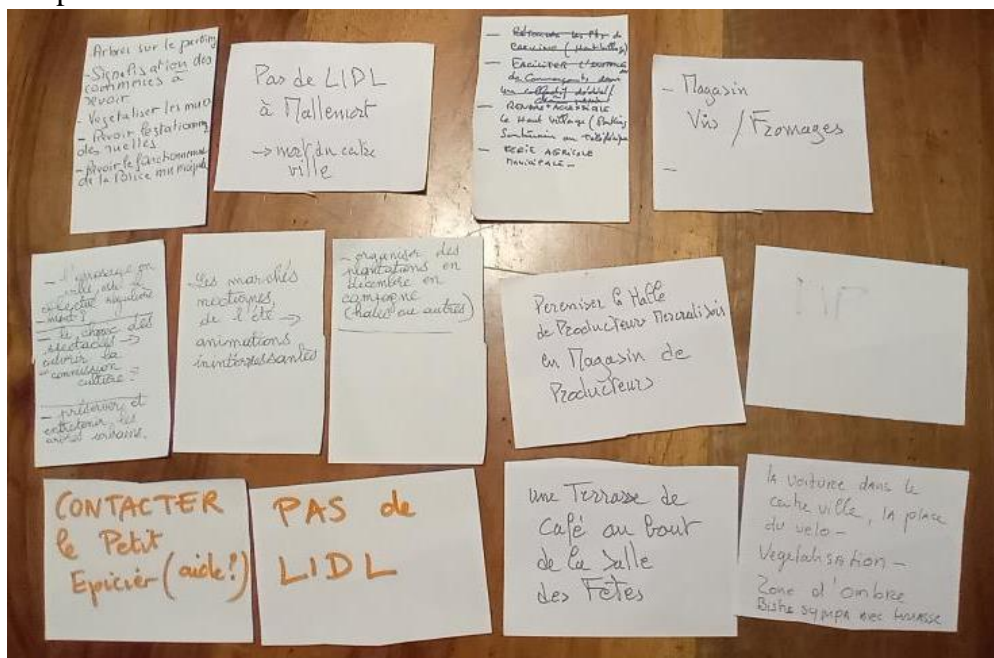 Arbres sur le parking
- Signalisation des
commerces à
revoir
- Vegetaliser les murs
- Revoir le stationnmt
des ruelles
- Revoir le fonctionnement
de la Police municipale
Pas de LIDL
à Mallemort
→ mort du catre
ville
les Pts de
- FACILITER L'
de Commerçants dans
un collectif
le Haut Village (Parking
Souterrain au
MUNICIPALE -
- Magasin
Vins / Fromages
-
- l'arrosage en
ville, est-il
régulière
- ment ?
- le choix des
spectacles →
ouvrir la
"commission
culture" ?
- préserver et
entretenir les
arbres
Les marchés
nocturnes
de l'été →
animations
inintéressantes
- organiser des
en
décembre en
campagne
(halles ou autres)
Pereniser la Halle
de Producteurs Mercredi soir
en Magasin de
Producteurs
CONTACTER
le Petit
Epicier (aide !)
PAS de
LIDL
une Terrasse de
Café au bout
de la Salle
des Fêtes
la voiture dans le
centre ville, la place
du velo -
Vegetalisation -
Zone d'ombre
Bistro sympa avec terrasse